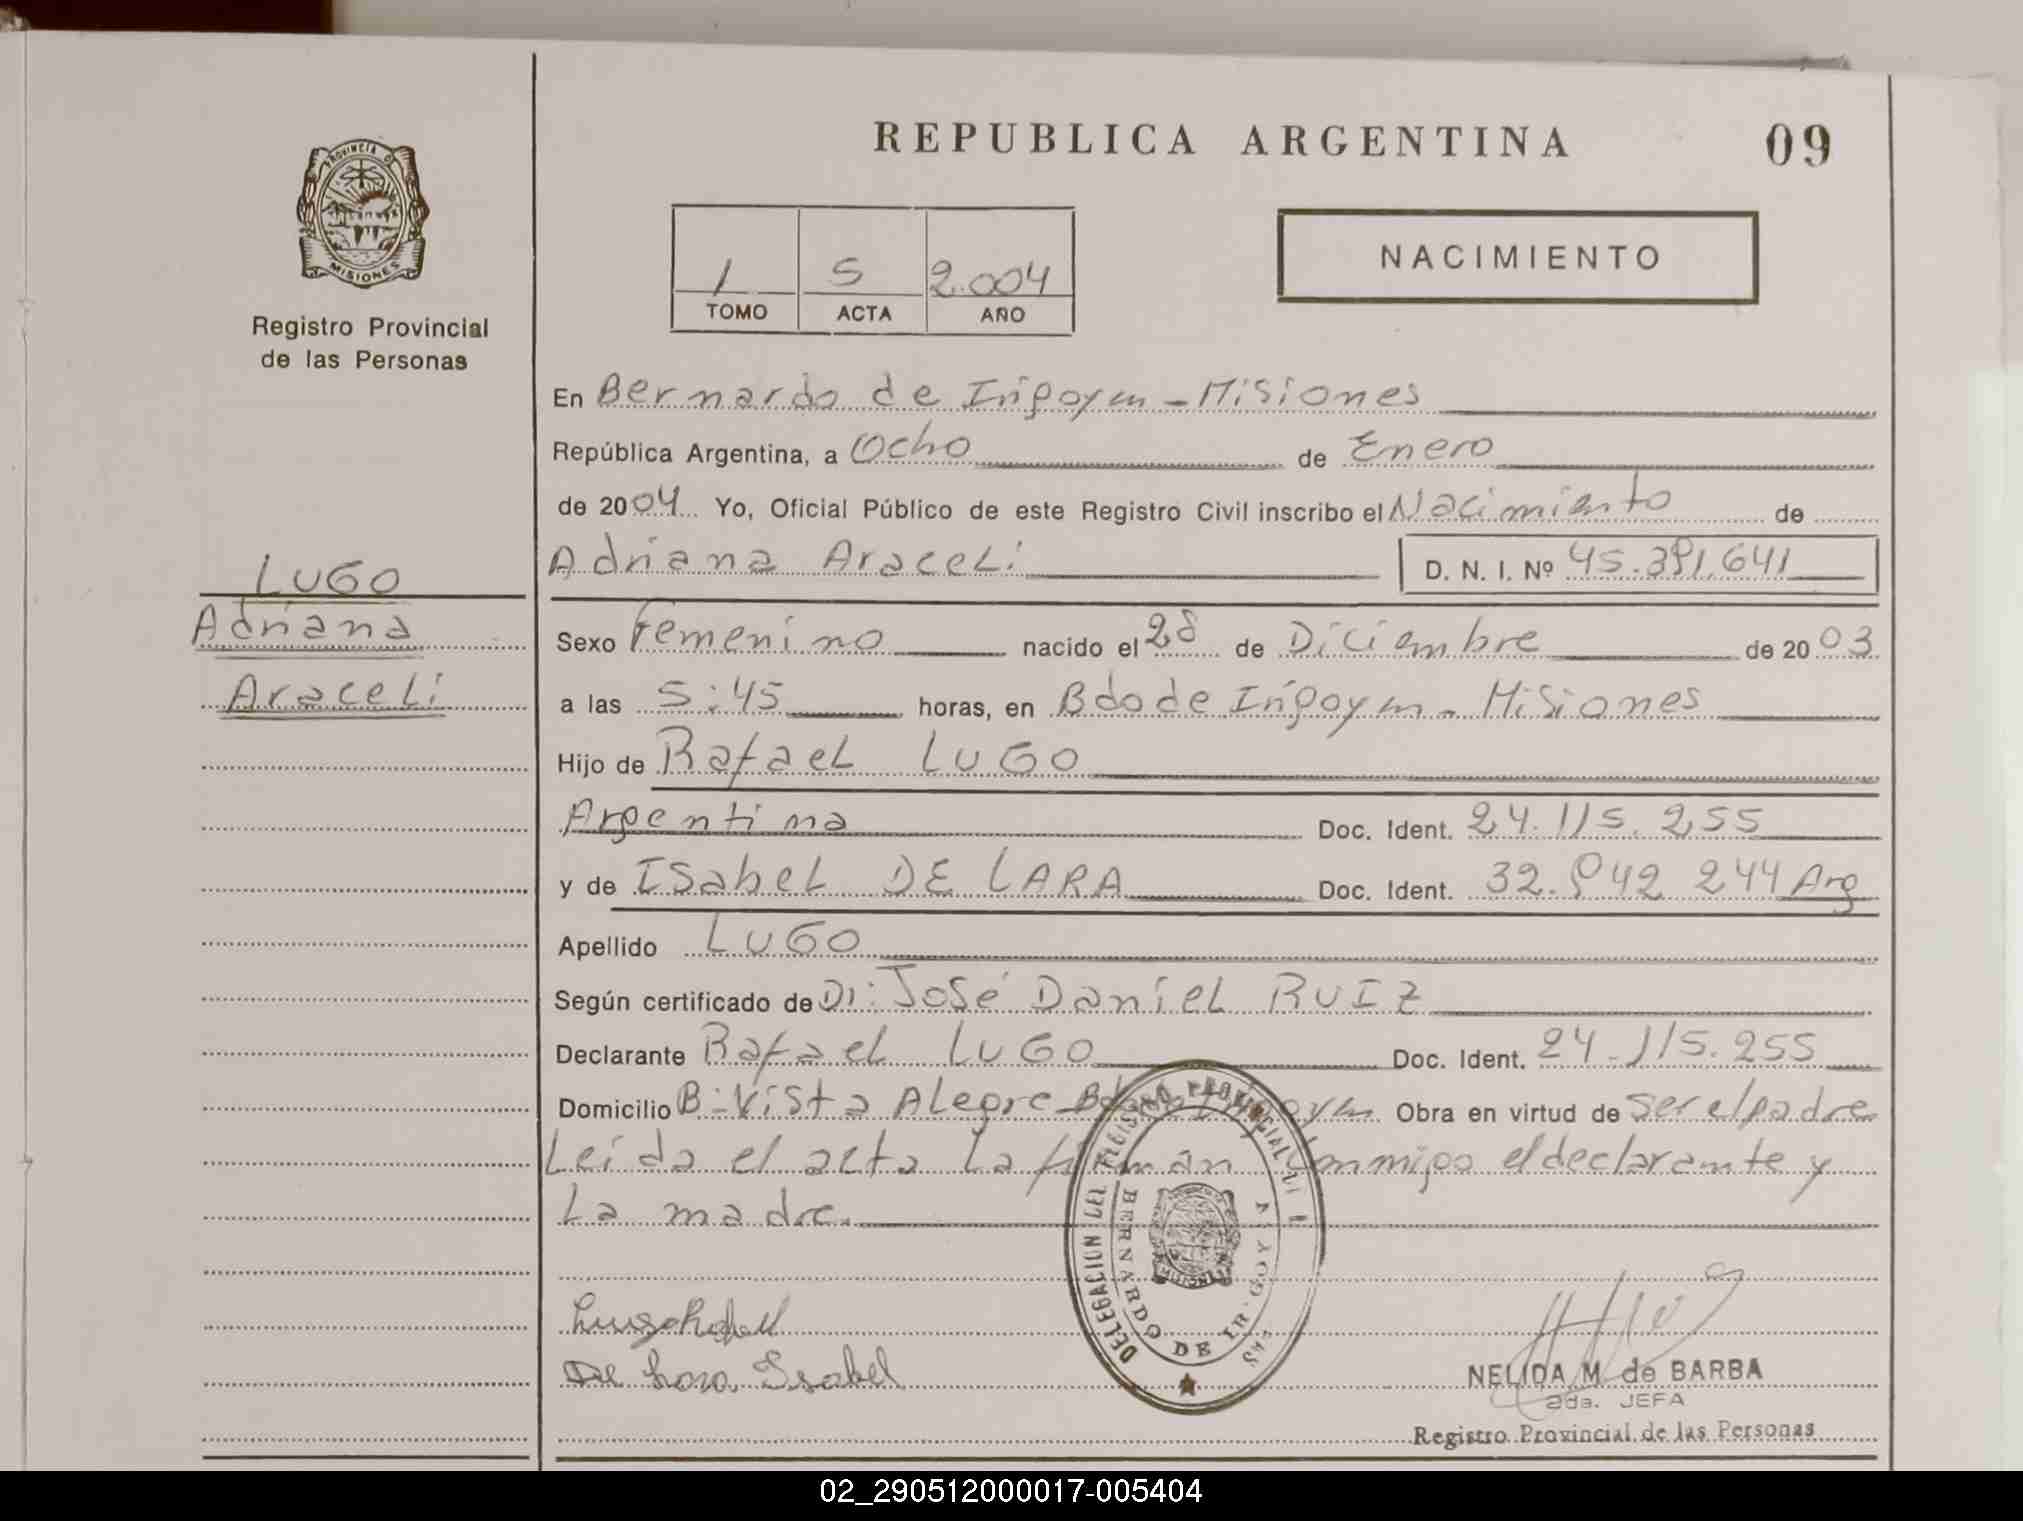 REPUBLICA ARGENTINA
09
PROVINCIA D
MISIONES
Registro Provincial
de las Personas
1 5 2.004
TOMO ACTA AÑO
NACIMIENTO
En Bernardo de Irigoyen - Misiones
República Argentina, a Ocho de Enero
de 2004 Yo, Oficial Público de este Registro Civil inscribo el Nacimiento de
Adriana Araceli D. N. I. Nº 45.391.641
LUGO
Adriana
Araceli
Sexo Femenino nacido el 28 de Diciembre de 2003
a las 5:45 horas, en Bdo de Irigoyen - Misiones
Hijo de Rafael LUGO
Argentina Doc. Ident. 24.115.255
y de Isabel DE LARA Doc. Ident. 32.942 244 Arg
Apellido LUGO
Según certificado de Dr: José Daniel RUIZ
Declarante Rafael LUGO Doc. Ident. 24.115.255
Domicilio B: Vista Alegre Obra en virtud de ser el padre
Leída el acta la firman conmigo el declarante y
la madre.
DELEGACION DEL REGISTRO PROVINCIAL
BERNARDO DE IRIGOYEN
MISIONES
Lugo Rafael
De Lara Isabel
NELIDA M. de BARBA
2da. JEFA
Registro Provincial de las Personas
02_290512000017-005404